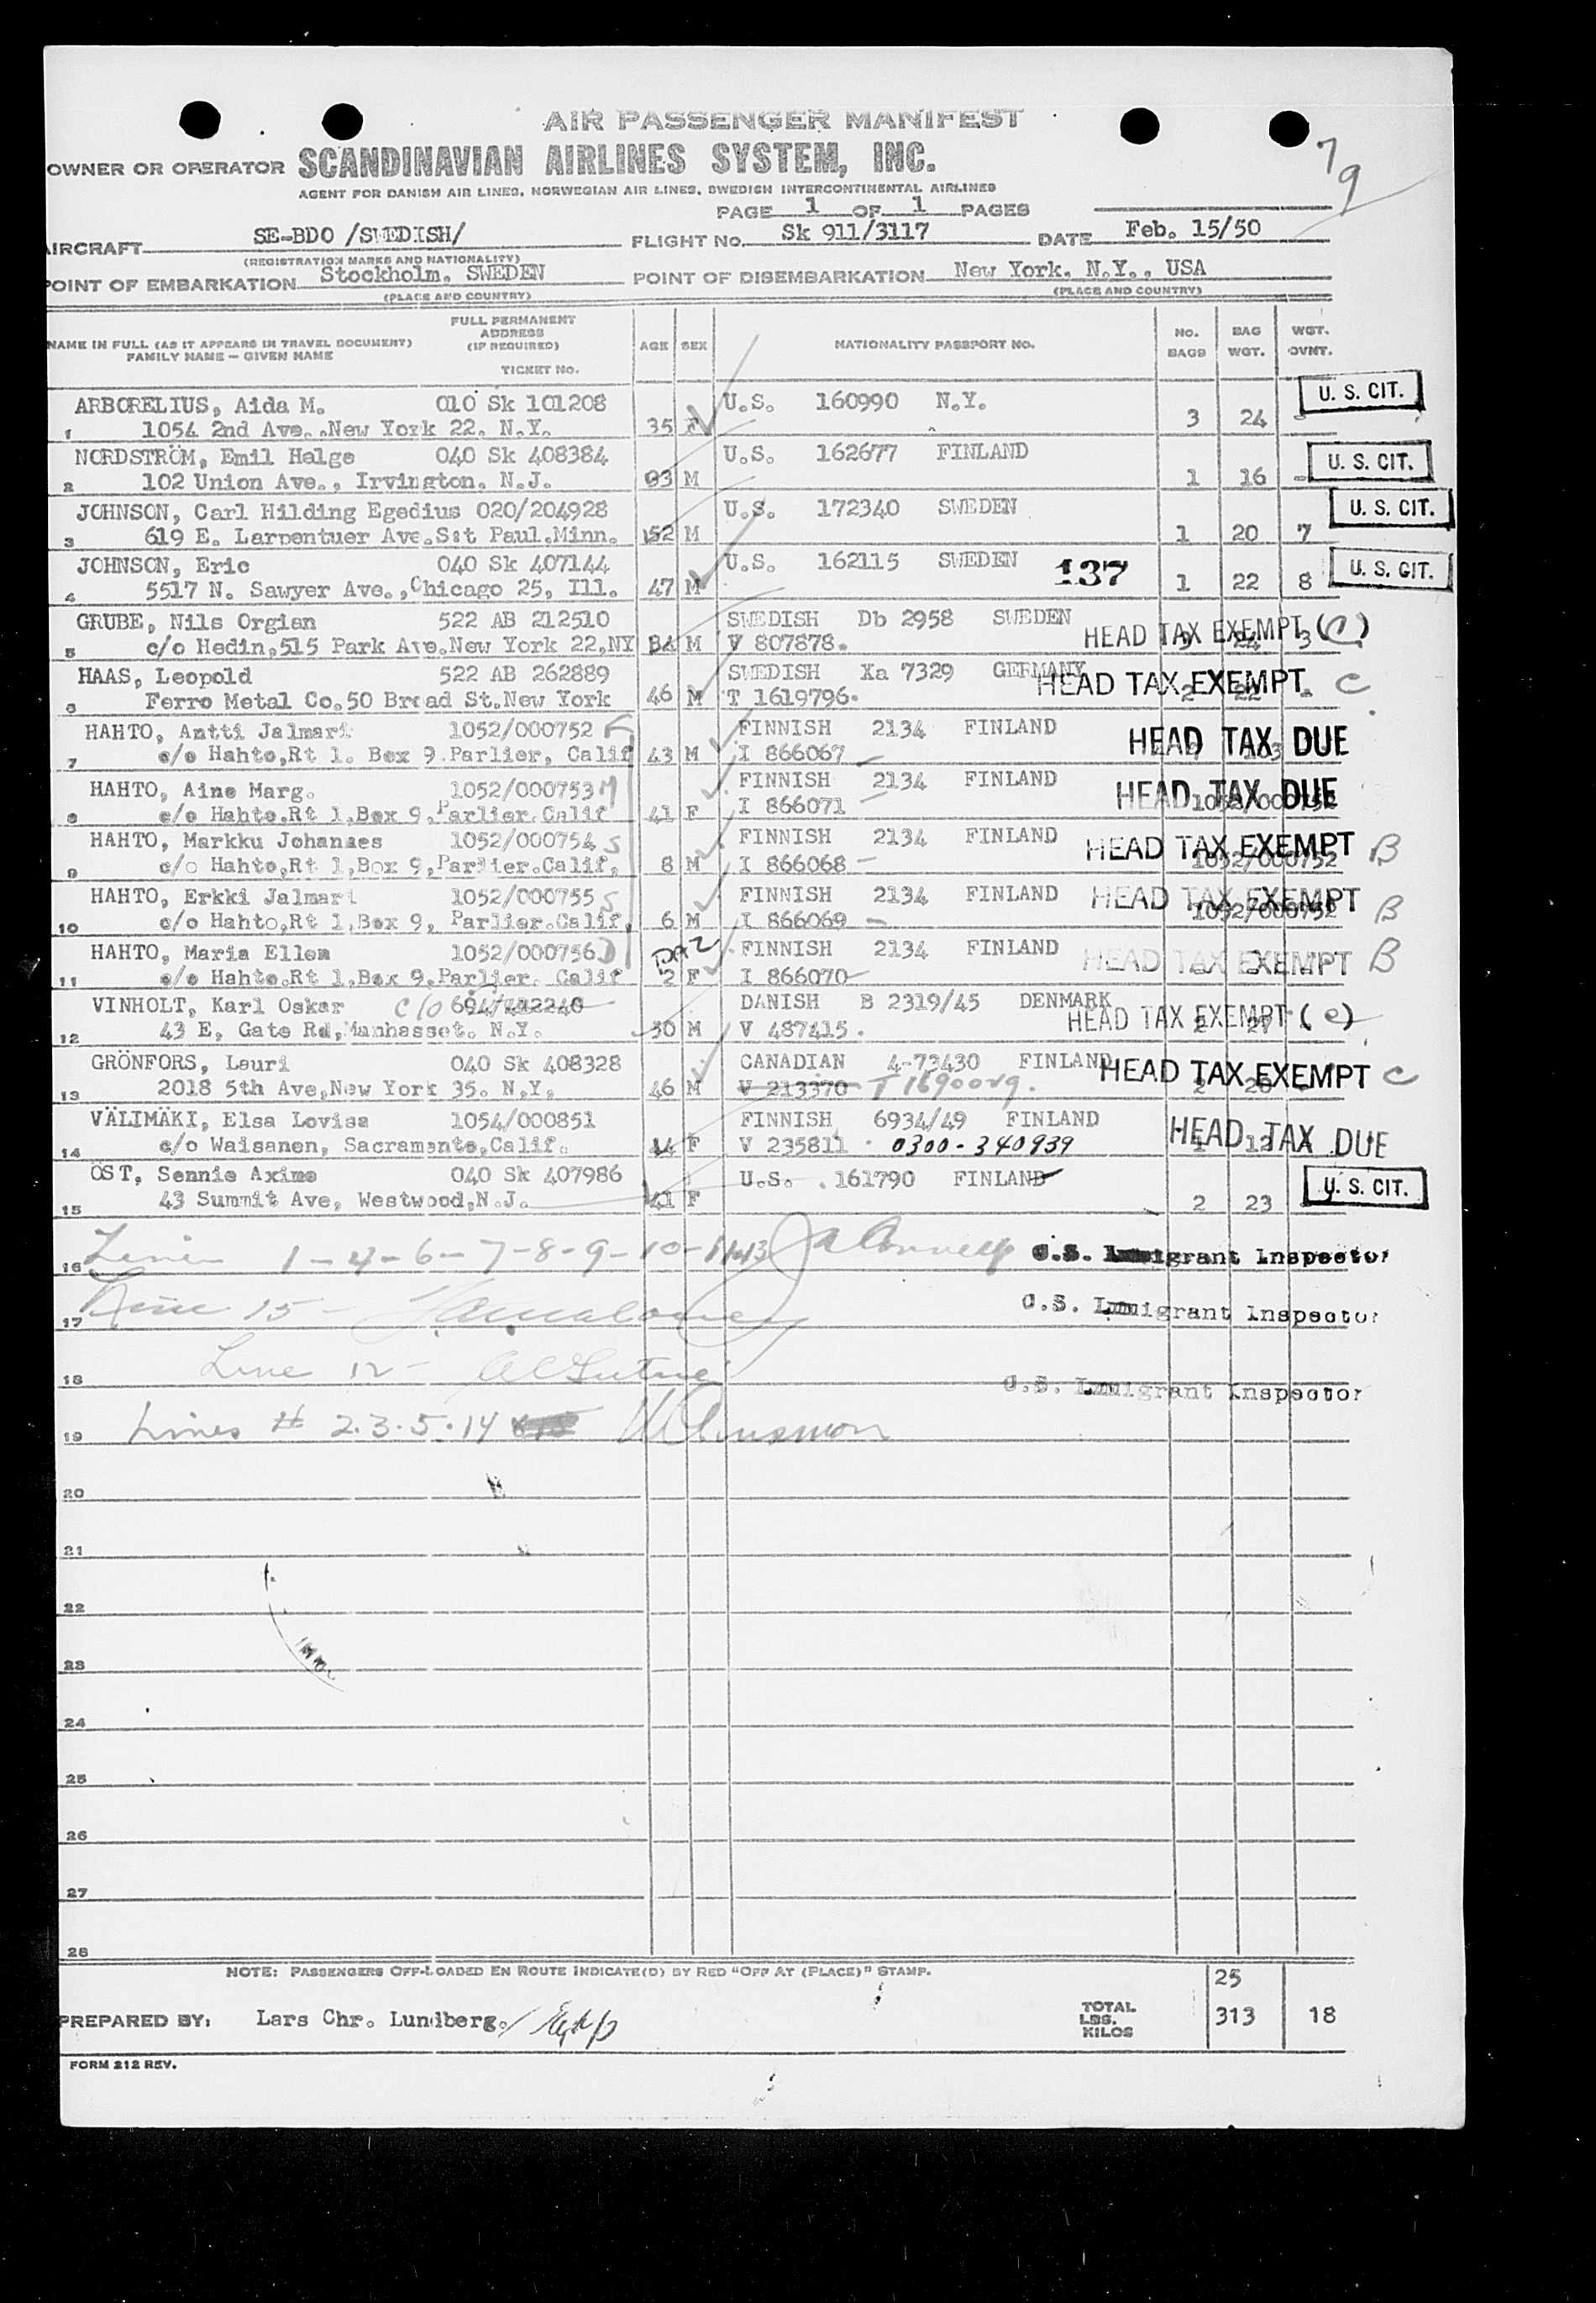 79
AIR PASSENGER MANIFEST
OWNER OR OPERATOR SCANDINAVIAN AIRLINES SYSTEM, INC.
AGENT FOR DANISH AIR LINES, NORWEGIAN AIR LINES, SWEDISH INTERCONTINENTAL AIRLINES
PAGE 1 OF 1 PAGES
AIRCRAFT SE-BDO /SWEDISH/ FLIGHT NO. Sk 911/3117 DATE Feb. 15/50
(REGISTRATION MARKS AND NATIONALITY)
POINT OF EMBARKATION Stockholm. SWEDEN POINT OF DISEMBARKATION New York. N.Y., USA
(PLACE AND COUNTRY) (PLACE AND COUNTRY)
NAME IN FULL (AS IT APPEARS IN TRAVEL DOCUMENT) FAMILY NAME – GIVEN NAME FULL PERMANENT ADDRESS (IF REQUIRED) TICKET NO. AGE SEX NATIONALITY PASSPORT NO. NO. BAGS BAG WGT. WGT. OVNT.
ARBORELIUS, Aida M. 010 Sk 101208 U.S. 160990 N.Y. U. S. CIT.
1 1054 2nd Ave. New York 22. N.Y. 35 F 3 24 -
NORDSTRÖM, Emil Helge 040 Sk 408384 U.S. 162677 FINLAND U. S. CIT.
2 102 Union Ave., Irvington. N.J. M 1 16 -
JOHNSON, Carl Hilding Egedius 020/204928 U.S. 172340 SWEDEN U. S. CIT.
3 619 E. Larpentuer Ave.S:t Paul.Minn. 52 M 1 20 7
JOHNSON, Eric 040 Sk 407144 U.S. 162115 SWEDEN 137 U. S. CIT.
4 5517 N. Sawyer Ave.,Chicago 25, Ill. 47 M 1 22 8
GRUBE, Nils Orgian 522 AB 212510 SWEDISH Db 2958 SWEDEN HEAD TAX EXEMPT (C)
5 c/o Hedin,515 Park Ave.New York 22,NY M V 807878. 24 3
HAAS, Leopold 522 AB 262889 SWEDISH Xa 7329 GERMANY HEAD TAX EXEMPT C
6 Ferro Metal Co.50 Broad St.New York 46 M T 1619796. 2 22 -
HAHTO, Antti Jalmari 1052/000752 F FINNISH 2134 FINLAND HEAD TAX DUE
7 c/o Hahto,Rt 1. Box 9.Parlier, Calif 43 M I 866067
HAHTO, Aine Marg. 1052/000753 M FINNISH 2134 FINLAND HEAD TAX DUE
8 c/o Hahto.Rt 1,Box 9,Parlier.Calif 41 F I 866071 1052/000752
HAHTO, Markku Johannes 1052/000754 S FINNISH 2134 FINLAND HEAD TAX EXEMPT B
9 c/o Hahto,Rt 1,Box 9,Parlier.Calif, 8 M I 866068 1052/000752
HAHTO, Erkki Jalmari 1052/000755 S FINNISH 2134 FINLAND HEAD TAX EXEMPT B
10 c/o Hahto,Rt 1,Box 9, Parlier.Calif, 6 M I 866069 1052/000752
HAHTO, Maria Ellen 1052/000756 D FINNISH 2134 FINLAND HEAD TAX EXEMPT B
11 c/o Hahto.Rt 1.Box 9.Parlier. Calif 2 F I 866070
VINHOLT, Karl Oskar c/o 694/242240 DANISH B 2319/45 DENMARK HEAD TAX EXEMPT (c)
12 43 E, Gate Rd,Manhasset. N.Y. 30 M V 487415. 2 27
GRÖNFORS, Lauri 040 Sk 408328 CANADIAN 4-73430 FINLAND HEAD TAX EXEMPT C
13 2018 5th Ave,New York 35. N.Y. 46 M V 213370 2 20
VÄLIMÄKI, Elsa Lovisa 1054/000851 FINNISH 6934/49 FINLAND HEAD TAX DUE
14 c/o Waisanen, Sacramento,Calif. F V 235811 0300-340939 1 12
ÖST, Sennie Axine 040 Sk 407986 U.S. 161790 FINLAND U. S. CIT.
15 43 Summit Ave, Westwood,N.J. 41 F 2 23
16 Lines 1-4-6-7-8-9-10-11-13 U.S. Immigrant Inspector
17 Line 15 - U.S. Immigrant Inspector
18 Line 12 - U.S. Immigrant Inspector
19 Lines # 2.3.5.14
20
21
22
23
24
25
26
27
28
NOTE: PASSENGERS OFF-LOADED EN ROUTE INDICATE(D) BY RED "OFF AT (PLACE)" STAMP. 25
PREPARED BY: Lars Chr. Lundberg. TOTAL LBS. KILOS 313 18
FORM 212 REV.